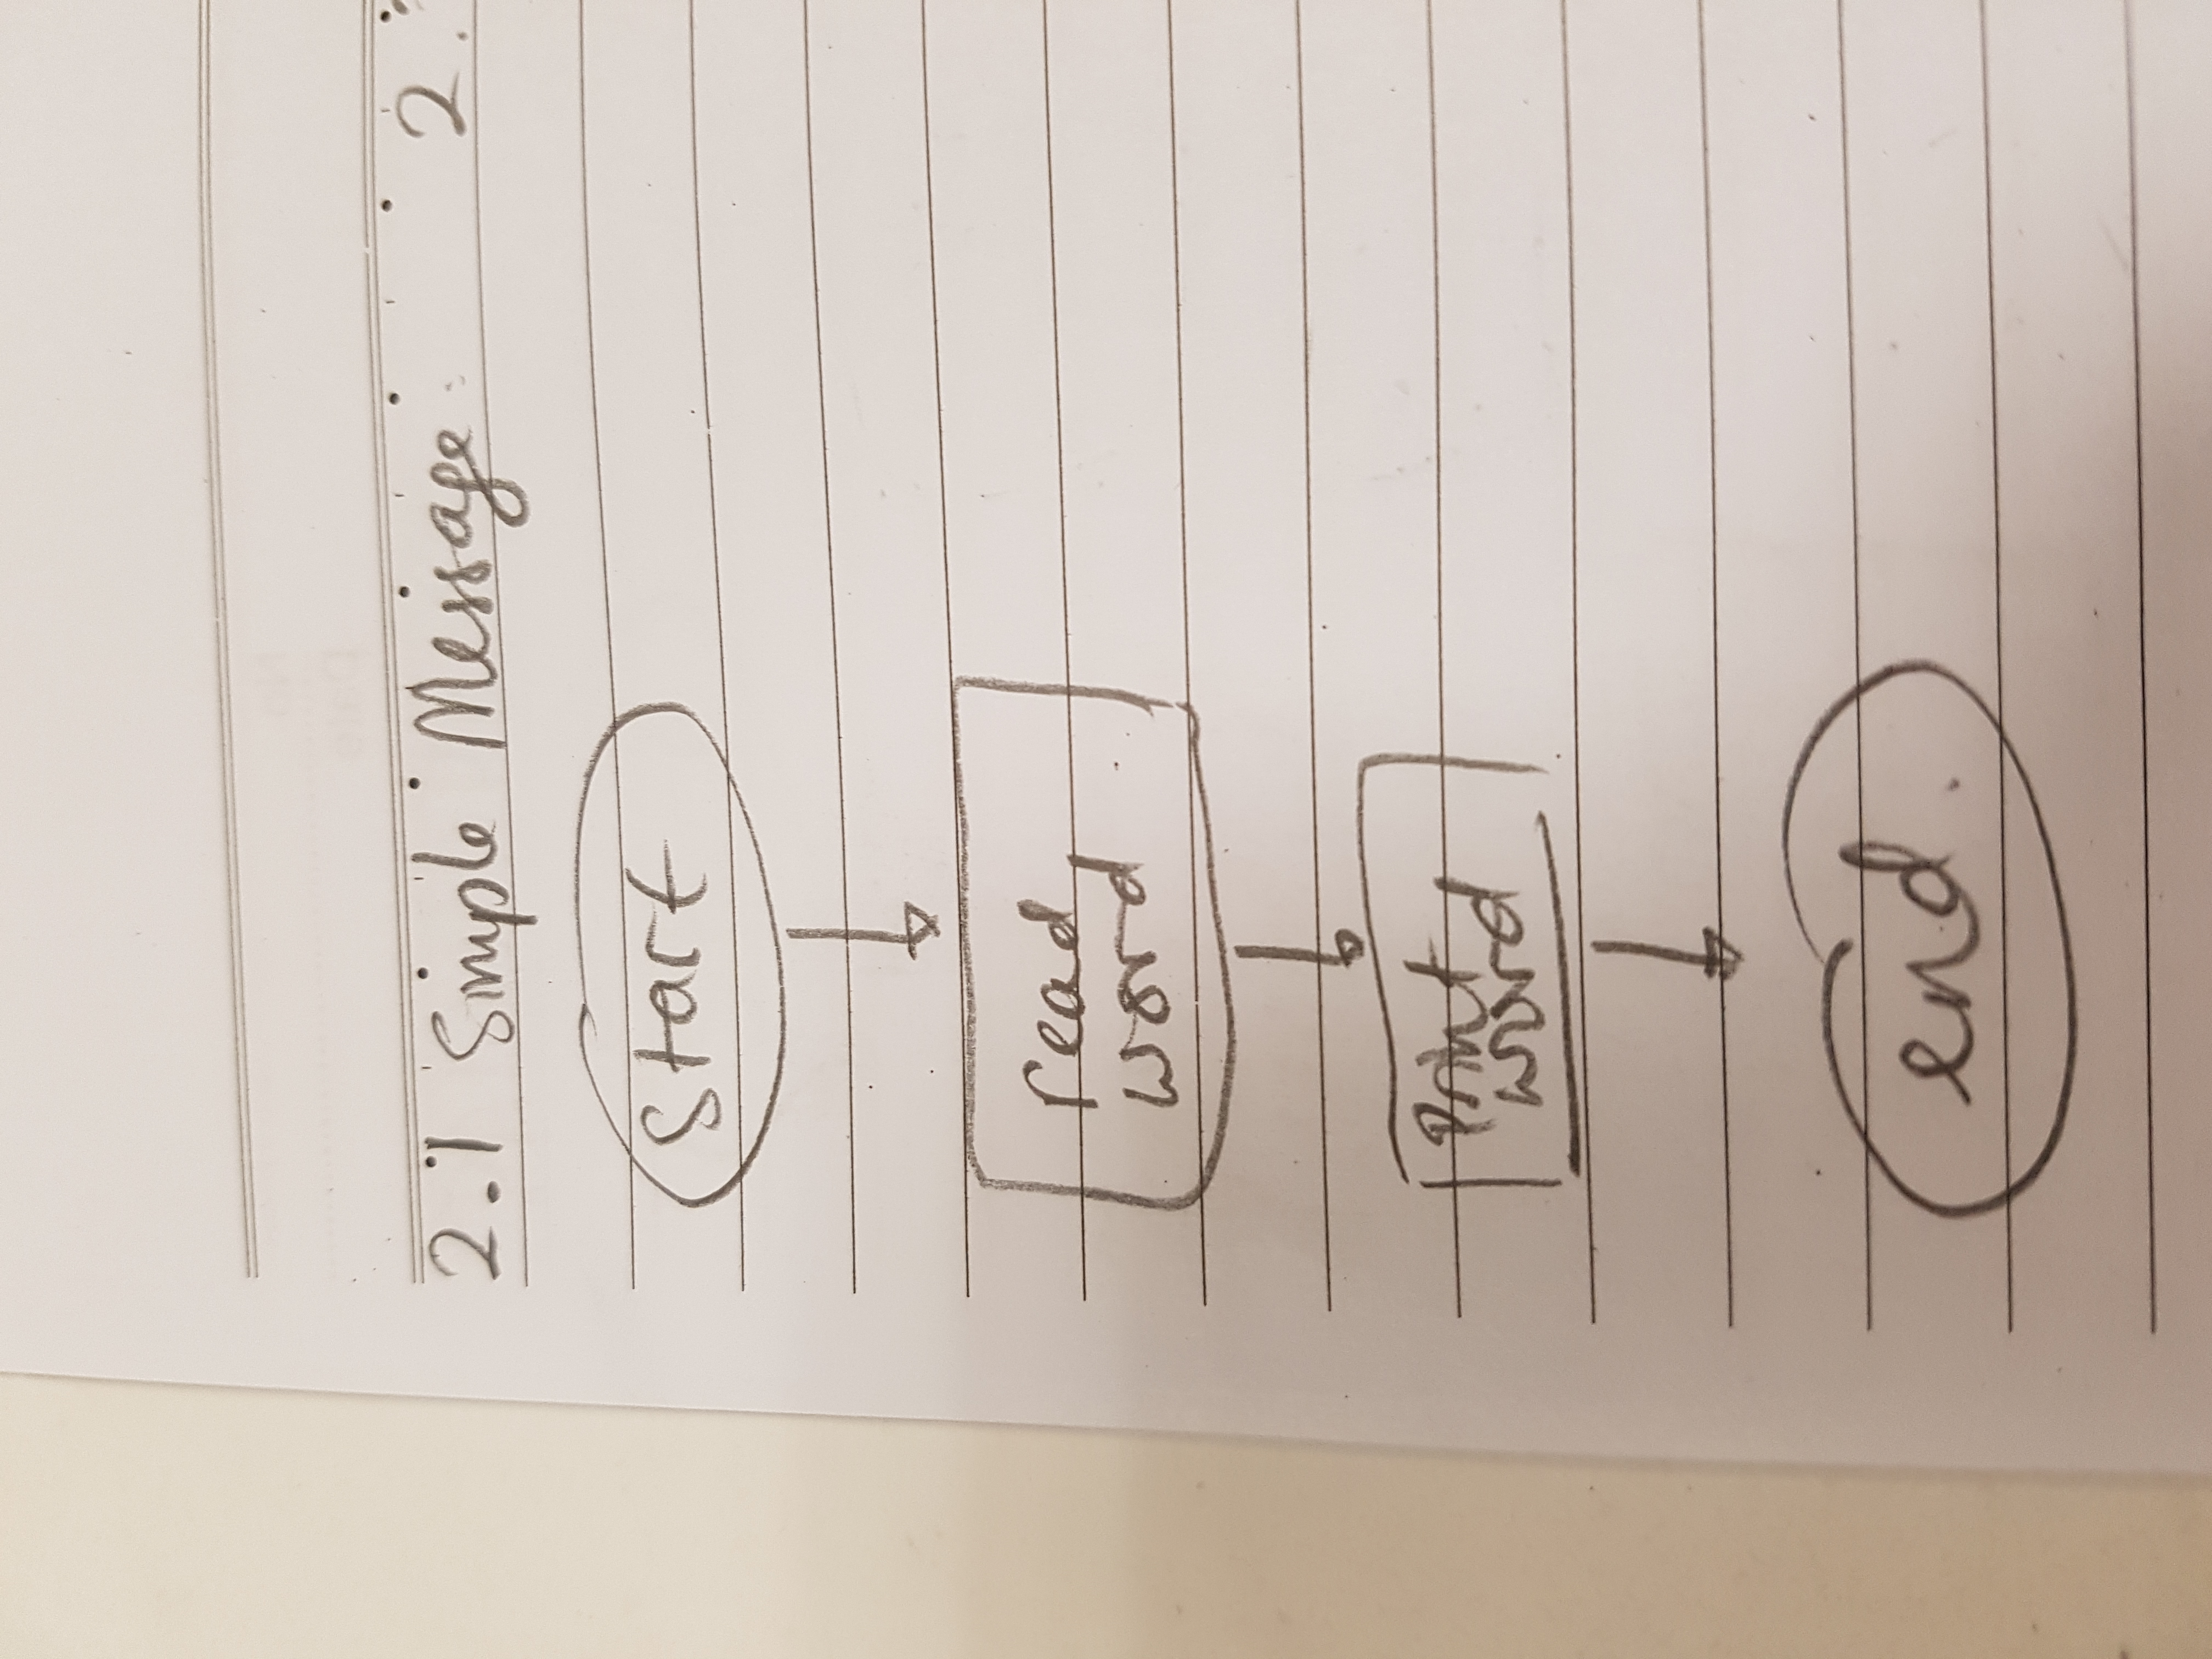 2.1 Simple Message
2.
Start
read
word
Print
word
end.